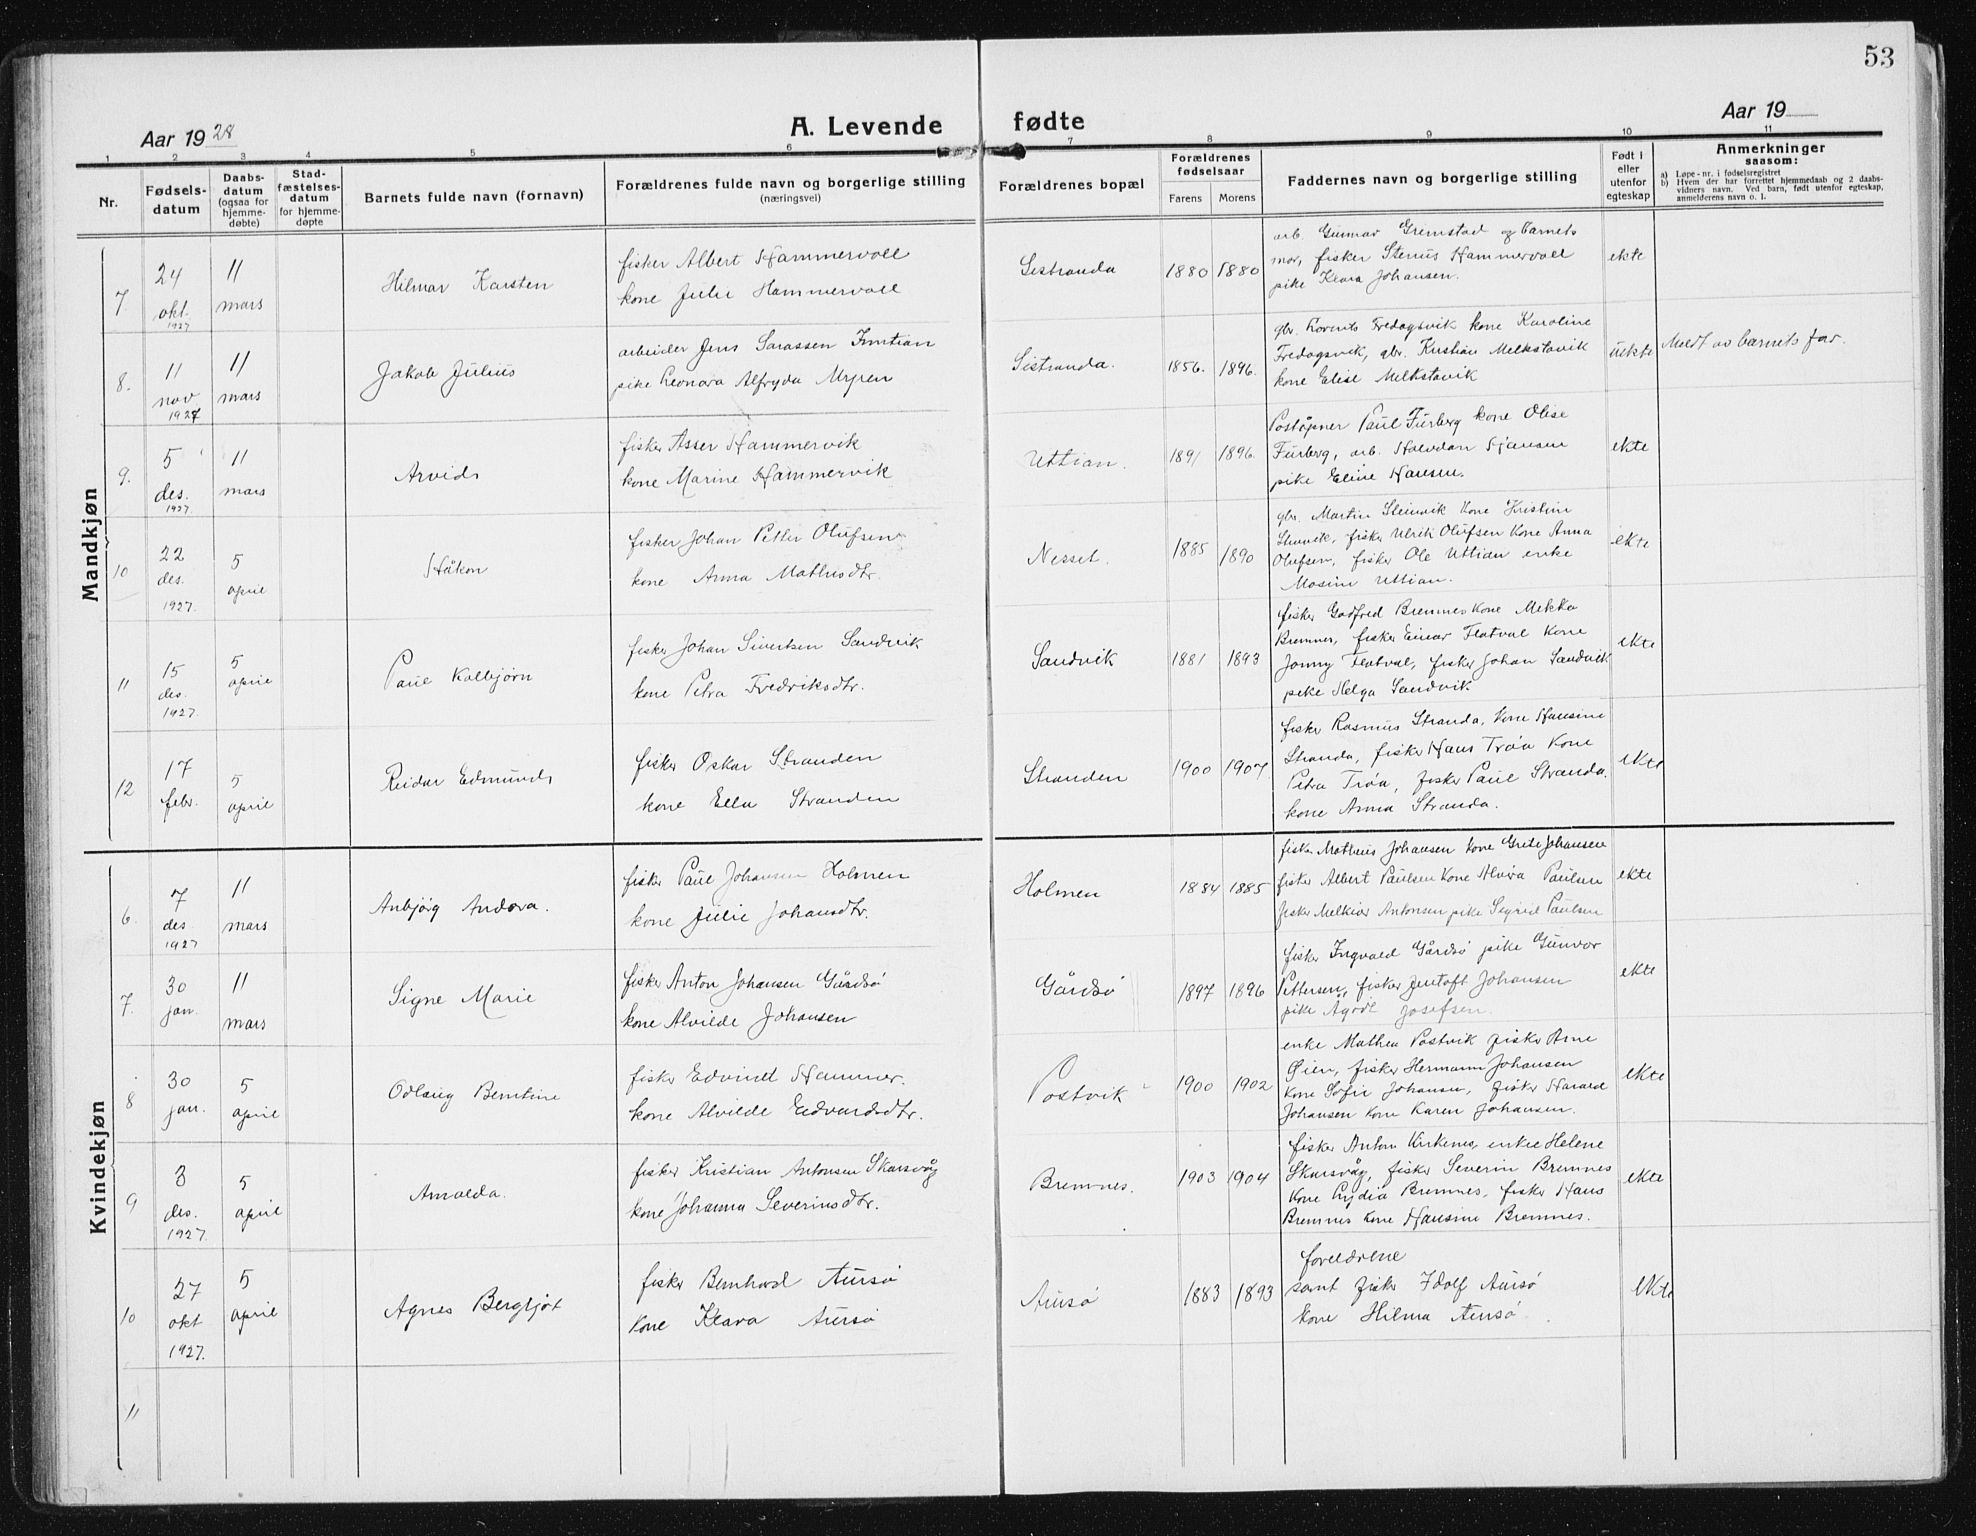 53
Aar 1928
A. Levende fødte
Aar 19
1 2 3 4 5 6 7 8 9 10 11
Nr.
Fødsels-
datum
Daabs-
datum
(ogsaa for
hjemme-
døbte)
Stad-
fæstelses-
datum
for hjemme-
døpte
Barnets fulde navn (fornavn)
Forældrenes fulde navn og borgerlige stilling
(næringsvei)
Forældrenes bopæl
Forældrenes
fødselsaar
Farens Morens
Faddernes navn og borgerlige stilling
Født i
eller
utenfor
egteskap
Anmerkninger
saasom:
a) Løpe-nr. i fødselsregistret
b) Hvem der har forrettet hjemmedaab og 2 daabs-
vidners navn. Ved barn, født utenfor egteskap,
anmelderens navn o. l.
Mandkjøn
7.
24
okt.
1927
11
mars
Hilmar Karsten
fisker Albert Hammervoll
kone Julie Hammervoll
Sistranda
1880 1880
arb. Gunnar Gremstad og barnets
mor, fisker Stenus Hammervoll
pike Klara Johansen.
ekte
8.
11
nov
1927
11
mars
Jakob Julius
arbeider Jens Sarassen
pike Leonora Alfryda Myren
Sistranda.
1856. 1896.
gbr. Lorents Fredagsvik kone Karoline
Fredagsvik, gbr. Kristian Melkstavik
kone Elise Melkstavik
uekte
Meldt av barnets far.
9.
5
des.
1927
11
mars
Arvid
fisker Asser Hammervik
kone Marine Hammervik
Uttian.
1891 1896.
Poståpner Paul Furberg kone Olise
Furberg, arb. Halvdan Hansen
pike Eline Hansen.
ekte
10
22
des.
1927.
5
april
Håkon
fisker Johan Petter Olufsen
kone Anna Mathisdtr.
Nesset.
1885 1890
gbr. Martin Steinvik kone Kristine
Steinvik, fisker Ulrik Olufsen kone Anna
Olufsen, fisker Ole Uttian enke
Masine Uttian.
ekte
11
15
des.
1927.
5
april
Paul Kolbjørn
fisker Johan Sivertsen Sandvik
kone Petra Fredriksdtr.
Sandvik
1881 1893
fisker Godfred Bremnes kone Mekka
Bremnes, fisker Einar Flatval kone
Jonny Flatval, fisker Johan Sandvik
pike Helga Sandvik
ekte
12
17
febr.
5
april
Reidar Edmund
fisker Oskar Stranden
kone Ella Stranden
Stranden
1900 1907
fisker Rasmus Stranda, kone Hansine
Stranda, fisker Hans Trøa kone
Petra Trøa, fisker Paul Stranda.
kone Anna Stranda.
ekte
Kvindekjøn
6.
7
des
1927
11
mars
Anbjørg Andora.
fisker Paul Johansen Holmen
kone Julie Johansdtr.
Holmen
1884 1885
fisker Matheus Johansen kone Grete Johansen
fisker Albert Paulsen kone Alvira Paulsen
fisker Melkior Antonsen pike Sigrid Paulsen
ekte
7.
30
jan.
11
mars
Signe Marie
fisker Anton Johansen Gårdsø
kone Alvilde Johansen
Gårdsø
1897 1896
fisker Ingvald Gårdsø pike Gunvor
Pettersen, fisker Jentoft Johansen
pike Agot Josefsen.
ekte
8
30
jan.
5
april
Odlaug Berntine
fisker Edvind Hammer.
kone Alvilde Edvardsdtr.
Postvik
1900 1902
enke Mathea Postvik fisker Arne
Øien, fisker Hermann Johansen
kone Sofie Johansen, fisker Harald
Johansen kone Karen Johansen.
ekte
9
3
des.
1927.
5
april
Arnolda.
fisker Kristian Antonsen Skarsvåg
kone Johanna Severinsdtr.
Bremnes.
1903 1904
fisker Anton Kirkenes, enke Helene
Skarsvåg, fisker Severin Bremnes
kone Lydia Bremnes, fisker Hans
Bremnes kone Hansine Bremnes.
ekte
10
27
okt
1927.
5
april
Agnes Bergljot
fisker Bernhard Aursø
kone Klara Aursø
Aursø
1883 1893
foreldrene
samt fisker Idolf Aursø
kone Hilma Aursø.
ekte
11